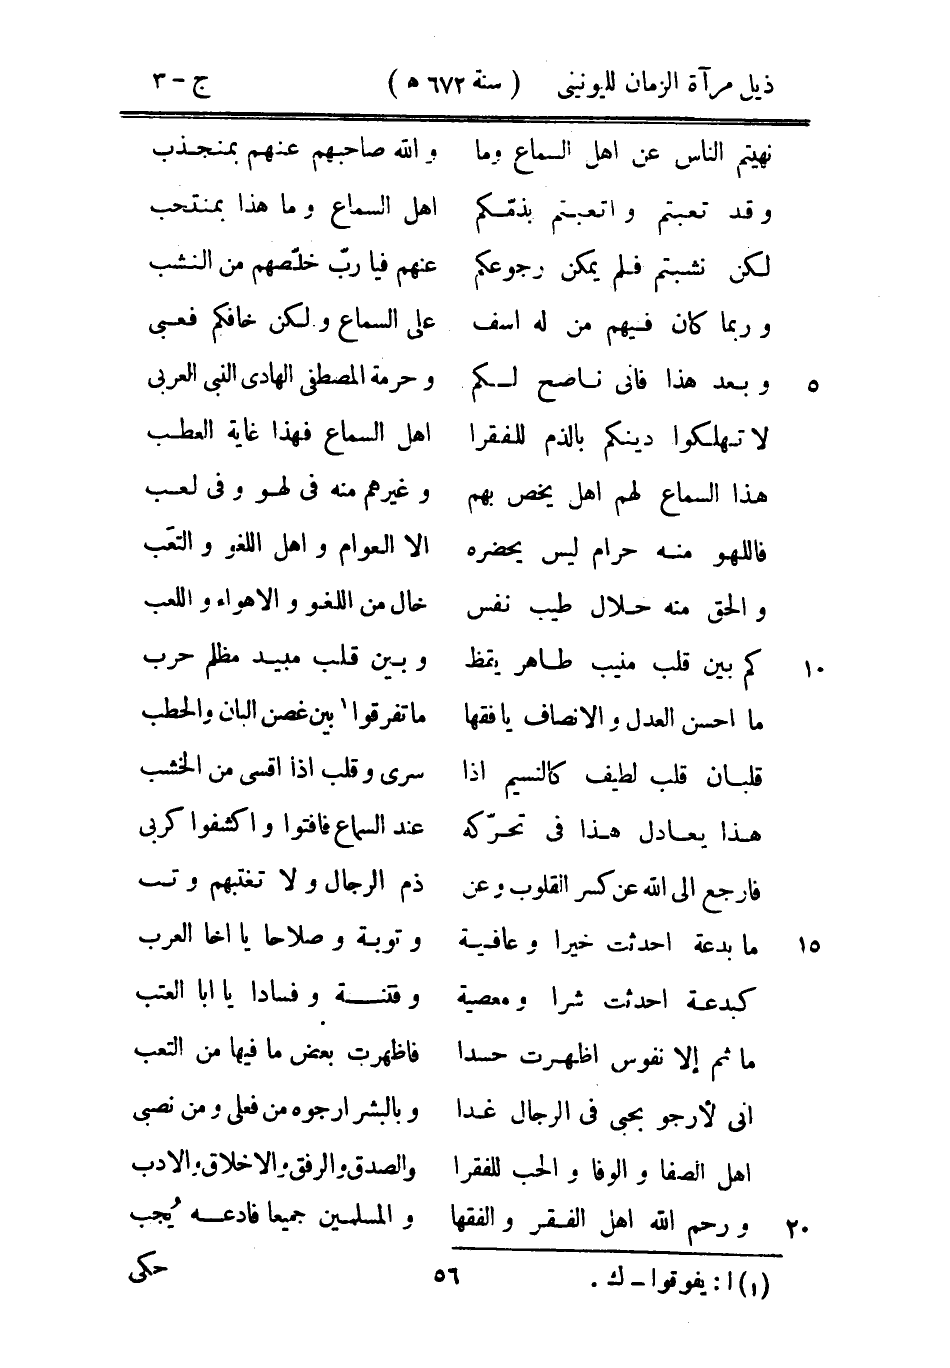 ذيل مرآة الزمان لليونينى ( سنة ٦٧٢ ه ) ج – ٣
نهيتم الناس عن اهل السماع وما و الله صاحبهم عنهم بمنجذب
و قد تعبتم و اتعبتم بذمّكم اهل السماع و ما هذا بمنتحب
لكن نشبتم فلم يمكن رجوعكم عنهم فيا ربّ خلّصهم من النشب
و ربما كان فيهم من له اسف على السماع و لكن خافكم فعبى
و بعد هذا فانى ناصح لكم و حرمة المصطفى الهادى النبى العربى ٥
لا تهلكوا دينكم بالذم للفقرا اهل السماع فهذا غاية العطب
هذا السماع لهم اهل يخص بهم و غيرهم منه فى لهو و فى لعب
فاللهو منه حرام ليس يحضره الا العوام و اهل اللغو و التعَب
و الحق منه حلال طيب نفس خال من اللغو و الاهواء و اللعب
كم بين قلب منيب طاهر يقظ و بين قلب مبيد مظلم حرب ١٠
ما احسن العدل و الانصاف يا فقها ما تفرقوا١ بين غصن البان والحطب
قلبان قلب لطيف كالنسيم اذا سرى و قلب اذا اقسى من الخشب
هذا يعادل هذا فى تحرّكه عند السماع فافتوا و اكشفوا كربى
فارجع الى الله عن كسر القلوب و عن ذم الرجال و لا تغتبهم و تب
ما بدعة احدثت خيرا و عافية و توبة و صلاحا يا اخا العرب ١٥
كبدعة احدثت شرا و معصية و فتنة و فسادا يا ابا العتب
ما ثم إلا نفوس اظهرت حسدا فاظهرت بعض ما فيها من التعب
انى لأرجو بحبى فى الرجال غدا و بالبشر ارجوه من فعلى و من نصبى
اهل الصفا و الوفا و الحب للفقرا والصدق والرفق والاخلاق والادب
و رحم الله اهل الفقر و الفقها و المسلمين جميعا فادعه يُجب ٢٠
(١) ا : يفوقوا – ك .
٥٦ حكى